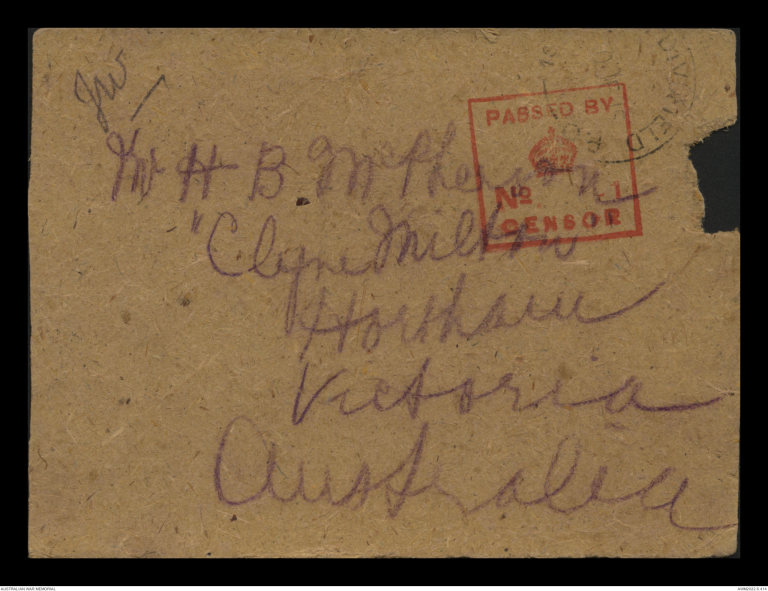 Mr H B McPherson
"Clyne Milton"
Horsham
Victoria
Australia
PASSED BY
Nº 1
CENSOR
AUSTRALIAN WAR MEMORIAL